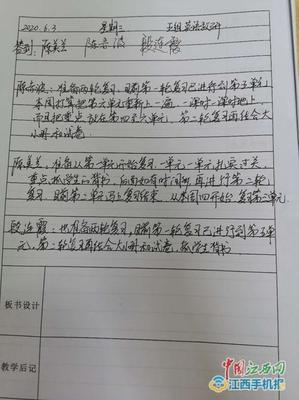 2020.6.3 星期三 五组英语教研
签到: 陈美兰 陈赤波 段连霞
陈赤波: 准备两轮复习, 目前第一轮复习已进行到第五单元
本周打算把第六单元重新上一遍, 一课时一课时地上
而且把重点放在第四至六单元, 第二轮复习再结合大
小册和试卷.
陈美兰: 准备从第一单元开始复习, 一单元一单元, 扎实过关,
重点抓学生的背书, 后面如有时间, 再进行第二轮
复习, 目前第二单元马上复习结束, 从本周四开始复习第三单元.
段连霞: 也准备两轮复习, 目前第一轮复习已进行到第五单
元, 第二轮复习再结合大小册和试卷, 抓学生背书
板书设计
教学后记
中国江西网
江西手机报